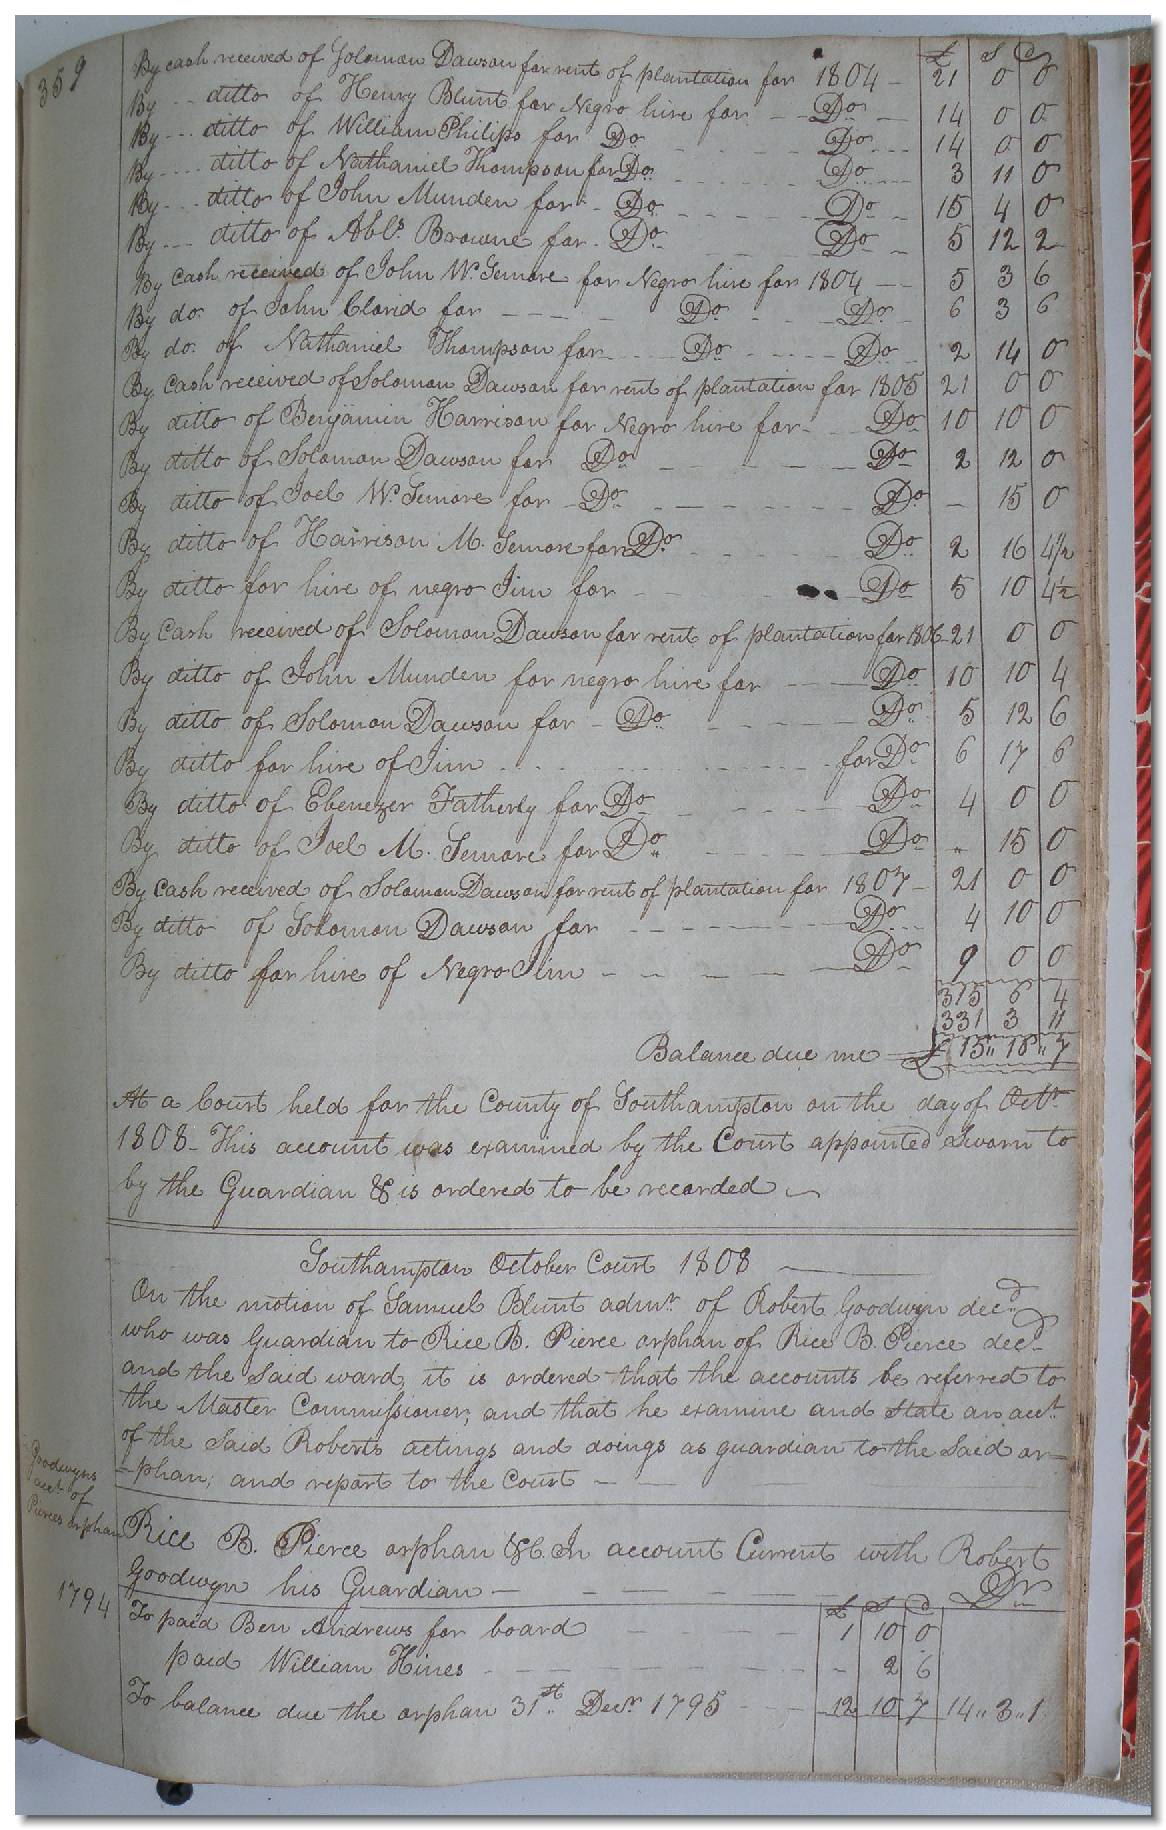 359
£ S D
By cash received of Soloman Dawson for rent of plantation for 1804 - 21 0 0
By -- ditto of Henry Blunt for Negro hire for - - Do - 14 0 0
By --- ditto of William Philips for Do - - - Do --- 14 0 0
By ---- ditto of Nathaniel Thompson for Do - - - - Do ---- 3 11 0
By --- ditto of John Munden for - Do - - - - Do - 15 4 0
By --- ditto of Abls. Browne for - Do - - - - Do - 5 12 2
By Cash received of John Wm. Semore for Negro hire for 1804 -- 5 3 6
By do. of John Clarid for - - - - Do - - Do - 6 3 6
By do. of Nathaniel Thompson for - - - Do - ---- Do - 2 14 0
By Cash received of Soloman Dawson for rent of plantation for 1805 21 0 0
By ditto of Benjamin Harrison for Negro hire for - - Do 10 10 0
By ditto of Soloman Dawson for Do - - - - Do 2 12 0
By ditto of Joel Wm. Semore for - Do - - - - Do - 15 0
By ditto of Harrison M. Semore for Do - - - Do 2 16 4½
By ditto for hire of negro Jim for - - Do 5 10 4½
By Cash received of Soloman Dawson for rent of plantation for 1806 - 21 0 0
By ditto of John Munden for negro hire for - - Do 10 10 4
By ditto of Soloman Dawson for - Do - - - Do 5 12 6
By ditto for hire of Jim - - - - - for Do 6 17 6
By ditto of Ebenezer Fatherly for Do - - - Do 4 0 0
By ditto of Joel M. Semore for Do - - - Do " 15 0
By Cash received of Soloman Dawson for rent of plantation for 1807 - 21 0 0
By ditto of Soloman Dawson for - - - - Do 4 10 0
By ditto for hire of Negro Jim - - - - Do 9 0 0
315 6 4
331 3 11
Balance due me - £ 15 " 18 " 7
At a Court held for the County of Southampton on the day of Octr.
1808 - This account was examined by the Court appointed Sworn to
by the Guardian & is ordered to be recorded -
Southampton October Court 1808
On the motion of Samuel Blunt admr. of Robert Goodwyn decd.
who was Guardian to Rice B. Pierce orphan of Rice B. Pierce decd.
and the Said ward, it is ordered that the accounts be referred to
the Master Commissioner, and that he examine and state an acct.
of the Said Roberts actings and doings as guardian to the Said or-
-phan; and report to the Court -
Goodwyns
acct. of
Pierces orphan
Rice B. Pierce orphan &C. In account Current with Robert
Goodwyn his Guardian - - - - Dr
1794
£ S D
To paid Ben Andrews for board - - - - 1 10 0
paid William Hines - - - - - 2 6
To balance due the orphan 31st. Decr. 1795 - - 12 10 7 14 " 3 " 1